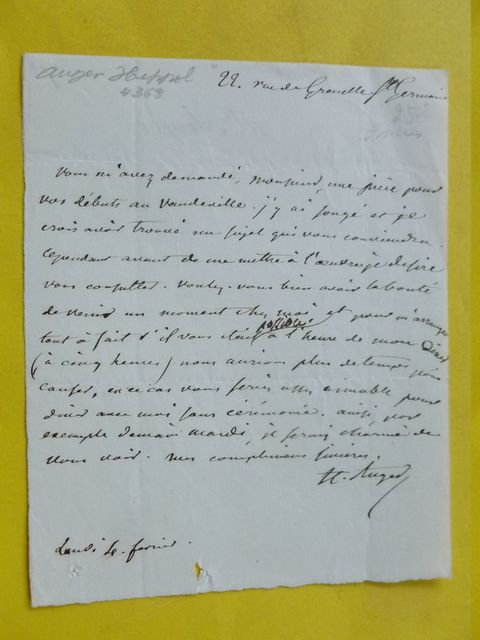 Auger Hippol
4363
22. rue de Grenelle St Germain
Vous m'avez demandé, Monsieur, une pièce pour
vos débuts au Vaudeville. j'y ai songé et je
crois avoir trouvé un sujet qui vous conviendra.
Cependant avant de me mettre à l'ouvrage desire
vous consulter. Voulez-vous bien avoir la bonté
de venir un moment chez moi et pour m'arranger
tout à fait s'il vous était possible à l'heure de mon diner
(à cinq heures) nous aurions plus de temps pour
causer, en ce cas vous seriez assez aimable pour
diner avec moi sans cérémonie. ainsi, par
exemple demain mardi, je serais charmé de
vous voir. mes complimens sincères.
H. Auger
Lundi 4. fevrier.